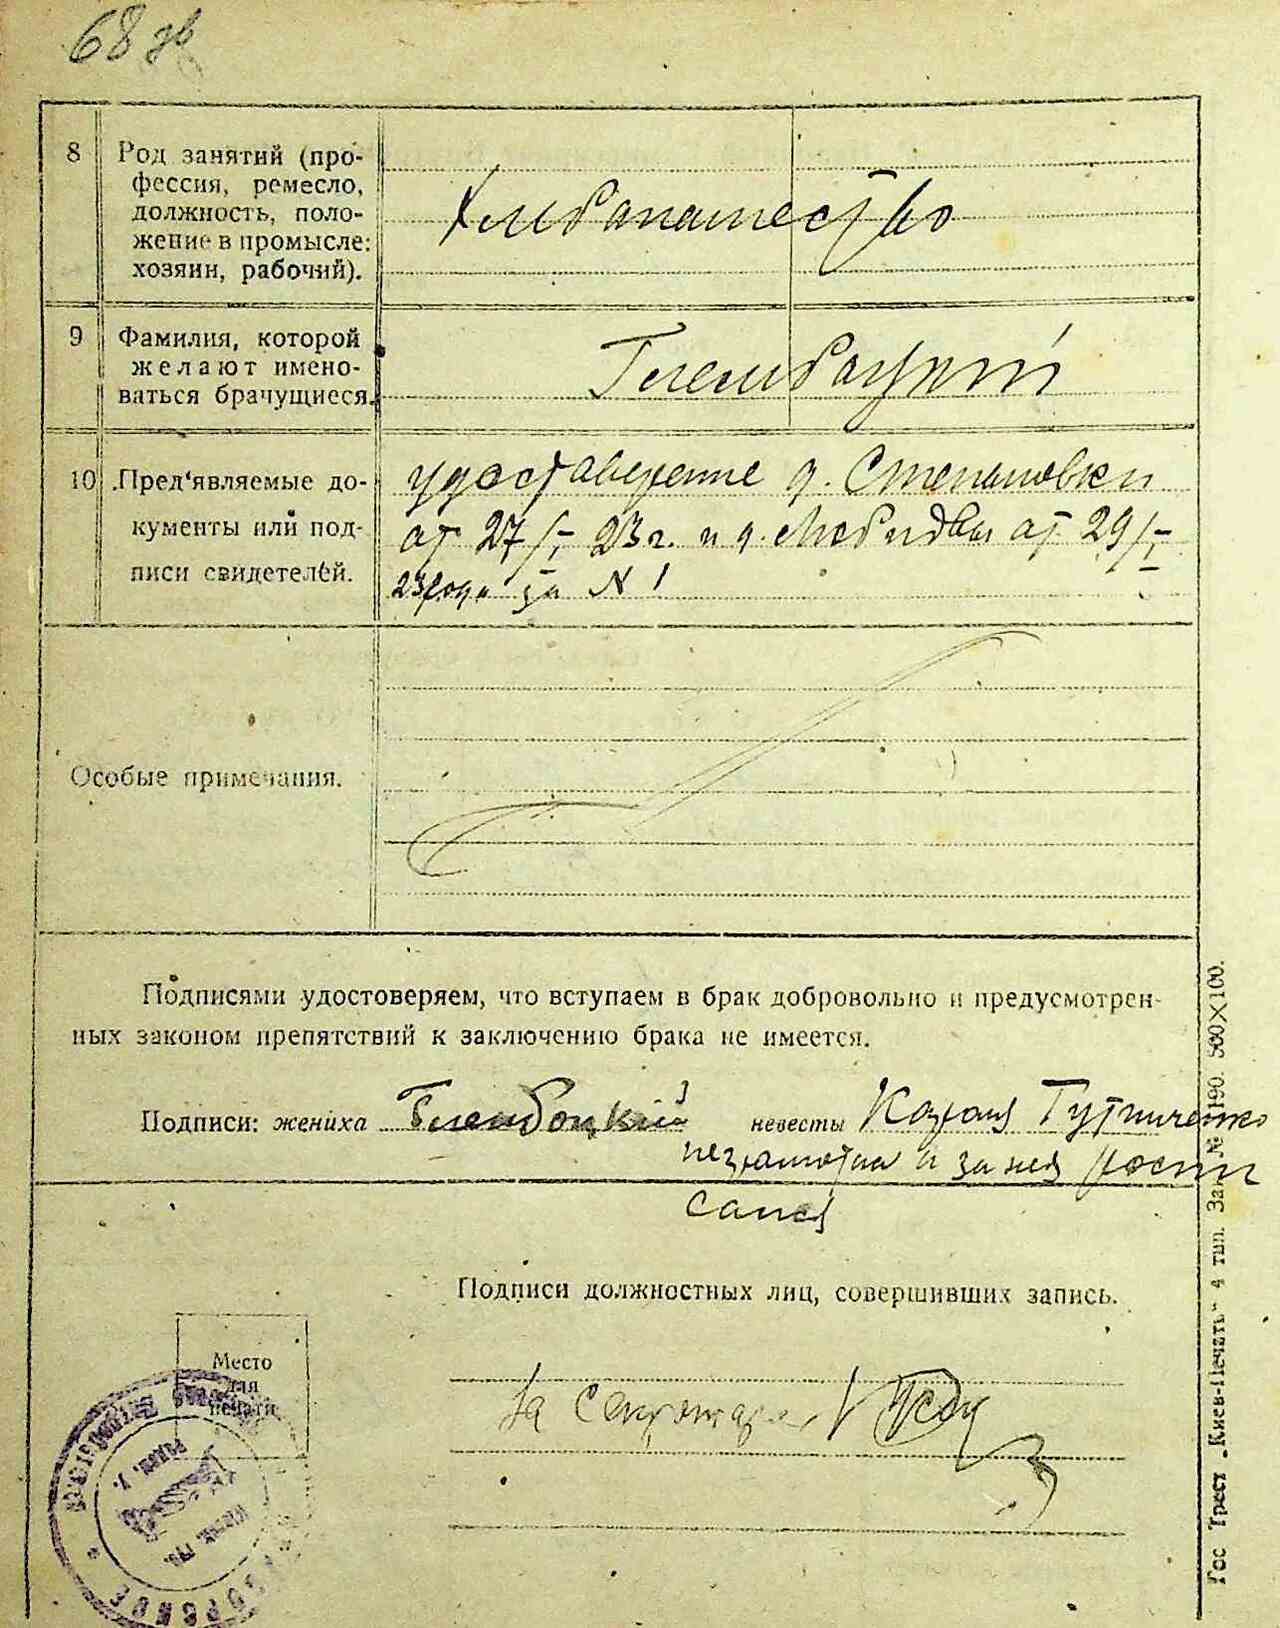 68 зв
8 Род занятий (про-
фессия, ремесло,
должность, поло-
жение в промысле:
хозяин, рабочий).
Хлибапашество
9 Фамилия, которой
желают имено-
ваться брачущиеся.
Глембацкий
10 Пред'являемые до-
кументы или под-
писи свидетелей.
удоставерение д. Степановки
от 27/I 23 г. и д. от 29/I
23 года за N 1
Особые примечания.
Подписями удостоверяем, что вступаем в брак добровольно и предусмотрен-
ных законом препятствий к заключению брака не имеется.
Подписи: жениха Глембоцкий невесты Гутниченко
неграмотна и за нея
Подписи должностных лиц, совершивших запись.
За Секретаря
Место
для
печати
Гос Трест „Киев-Печать" 4 тип. Зак. № 1190. 500×100.